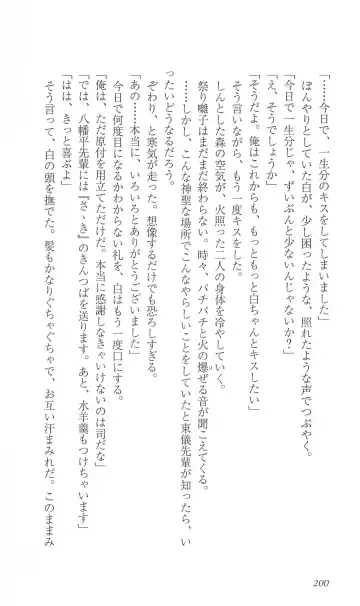 「……今日で、一生分のキスをしてしまいました」
ぼんやりとしていた白が、少し困ったような、照れたような声でつぶやく。
「今日で一生分じゃ、ずいぶんと少ないんじゃないか？」
「え、そうでしょうか」
「そうだよ。俺はこれからも、もっともっと白ちゃんとキスしたい」
そう言いながら、もう一度キスをした。
しんとした森の空気が、火照った二人の身体を冷やしていく。
祭り囃子はまだまだ終わらない。時々、パチパチと火の爆ぜる音が聞こえてくる。
……しかし、こんな神聖な場所でこんなやらしいことをしていたと東儀先輩が知ったら、い
ったいどうなるだろう。
ぞわり、と寒気が走った。想像するだけでも恐ろしすぎる。
「あの……本当に、いろいろとありがとうございました」
今日で何度目になるかわからない礼を、白はもう一度口にする。
「俺は、ただ原付を用立てただけだ。本当に感謝しなきゃいけないのは司だな」
「では、八幡平先輩には『さゝき』のきんつばを送ります。あと、水羊羹もつけちゃいます」
「はは、きっと喜ぶよ」
そう言って、白の頭を撫でた。髪もかなりぐちゃぐちゃで、お互い汗まみれだ。このままみ
200